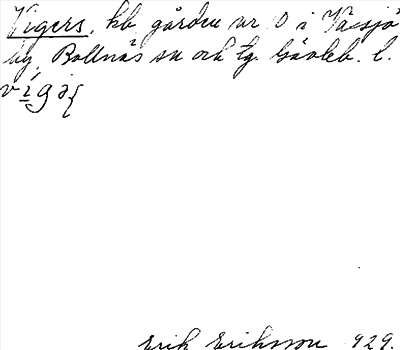 Vigers, kb gården nr 0 i Växsjö
by, Bollnäs sn och tg. Gävleb. l.
Erik Eriksson 929.